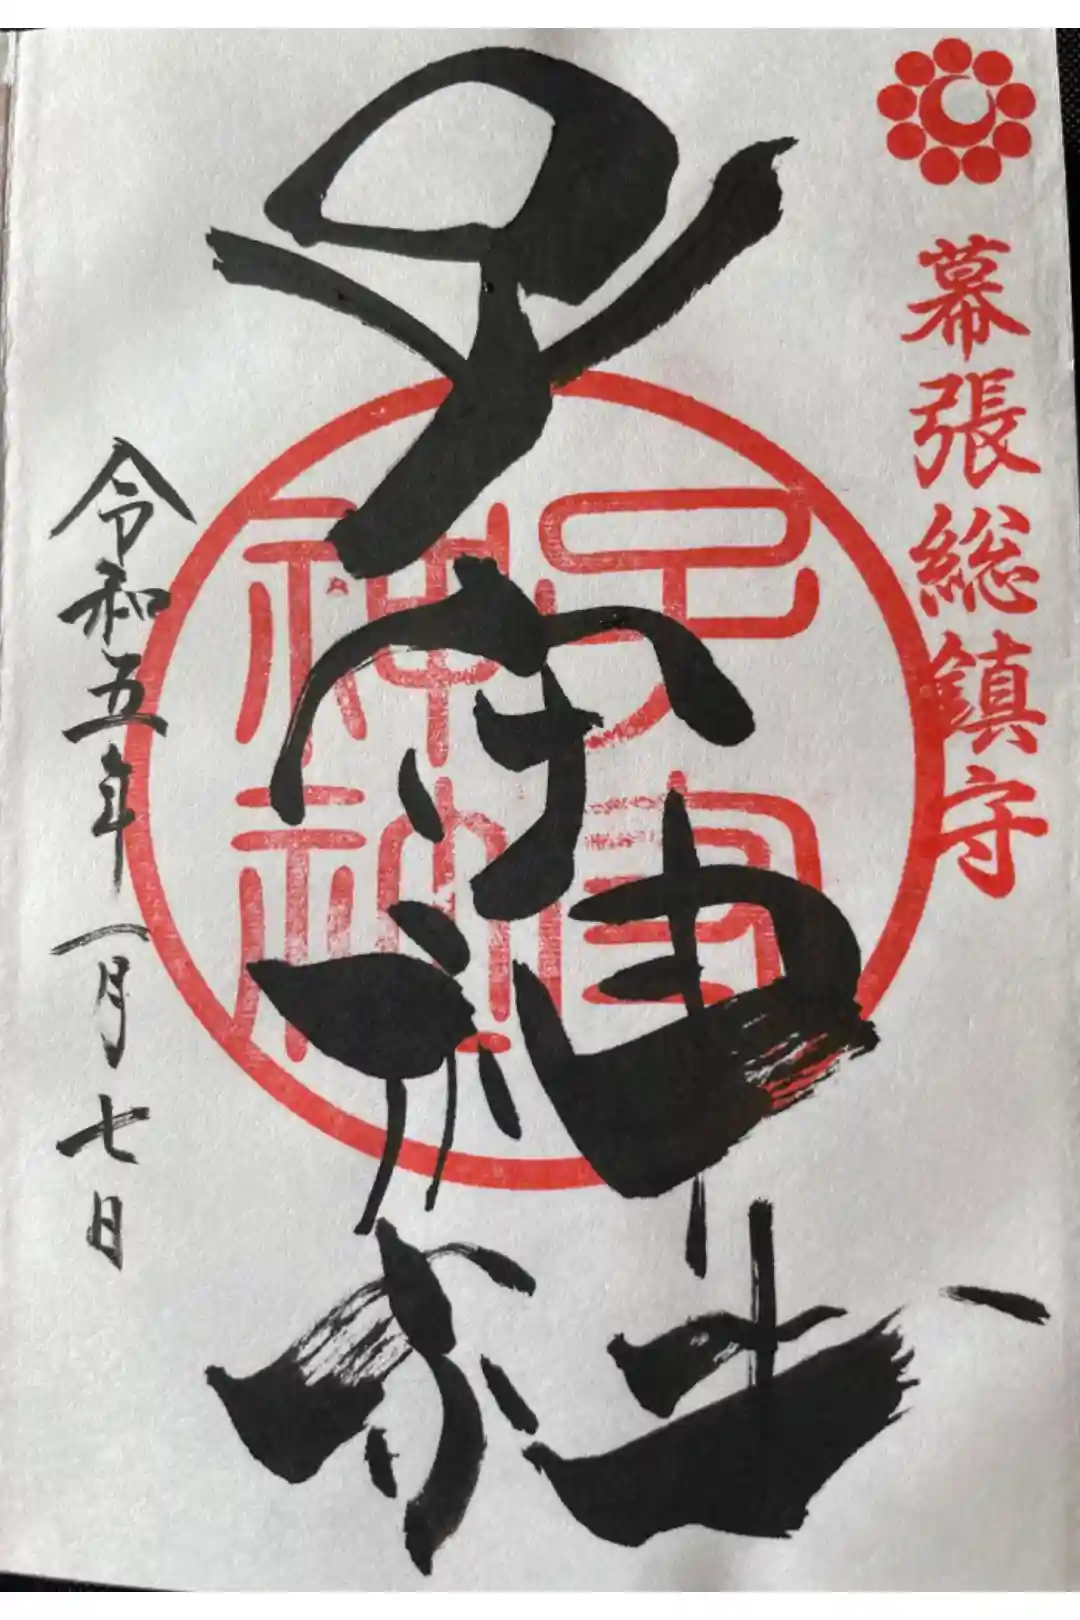 幕張総鎮守
子守神社
子守神社
令和五年一月七日